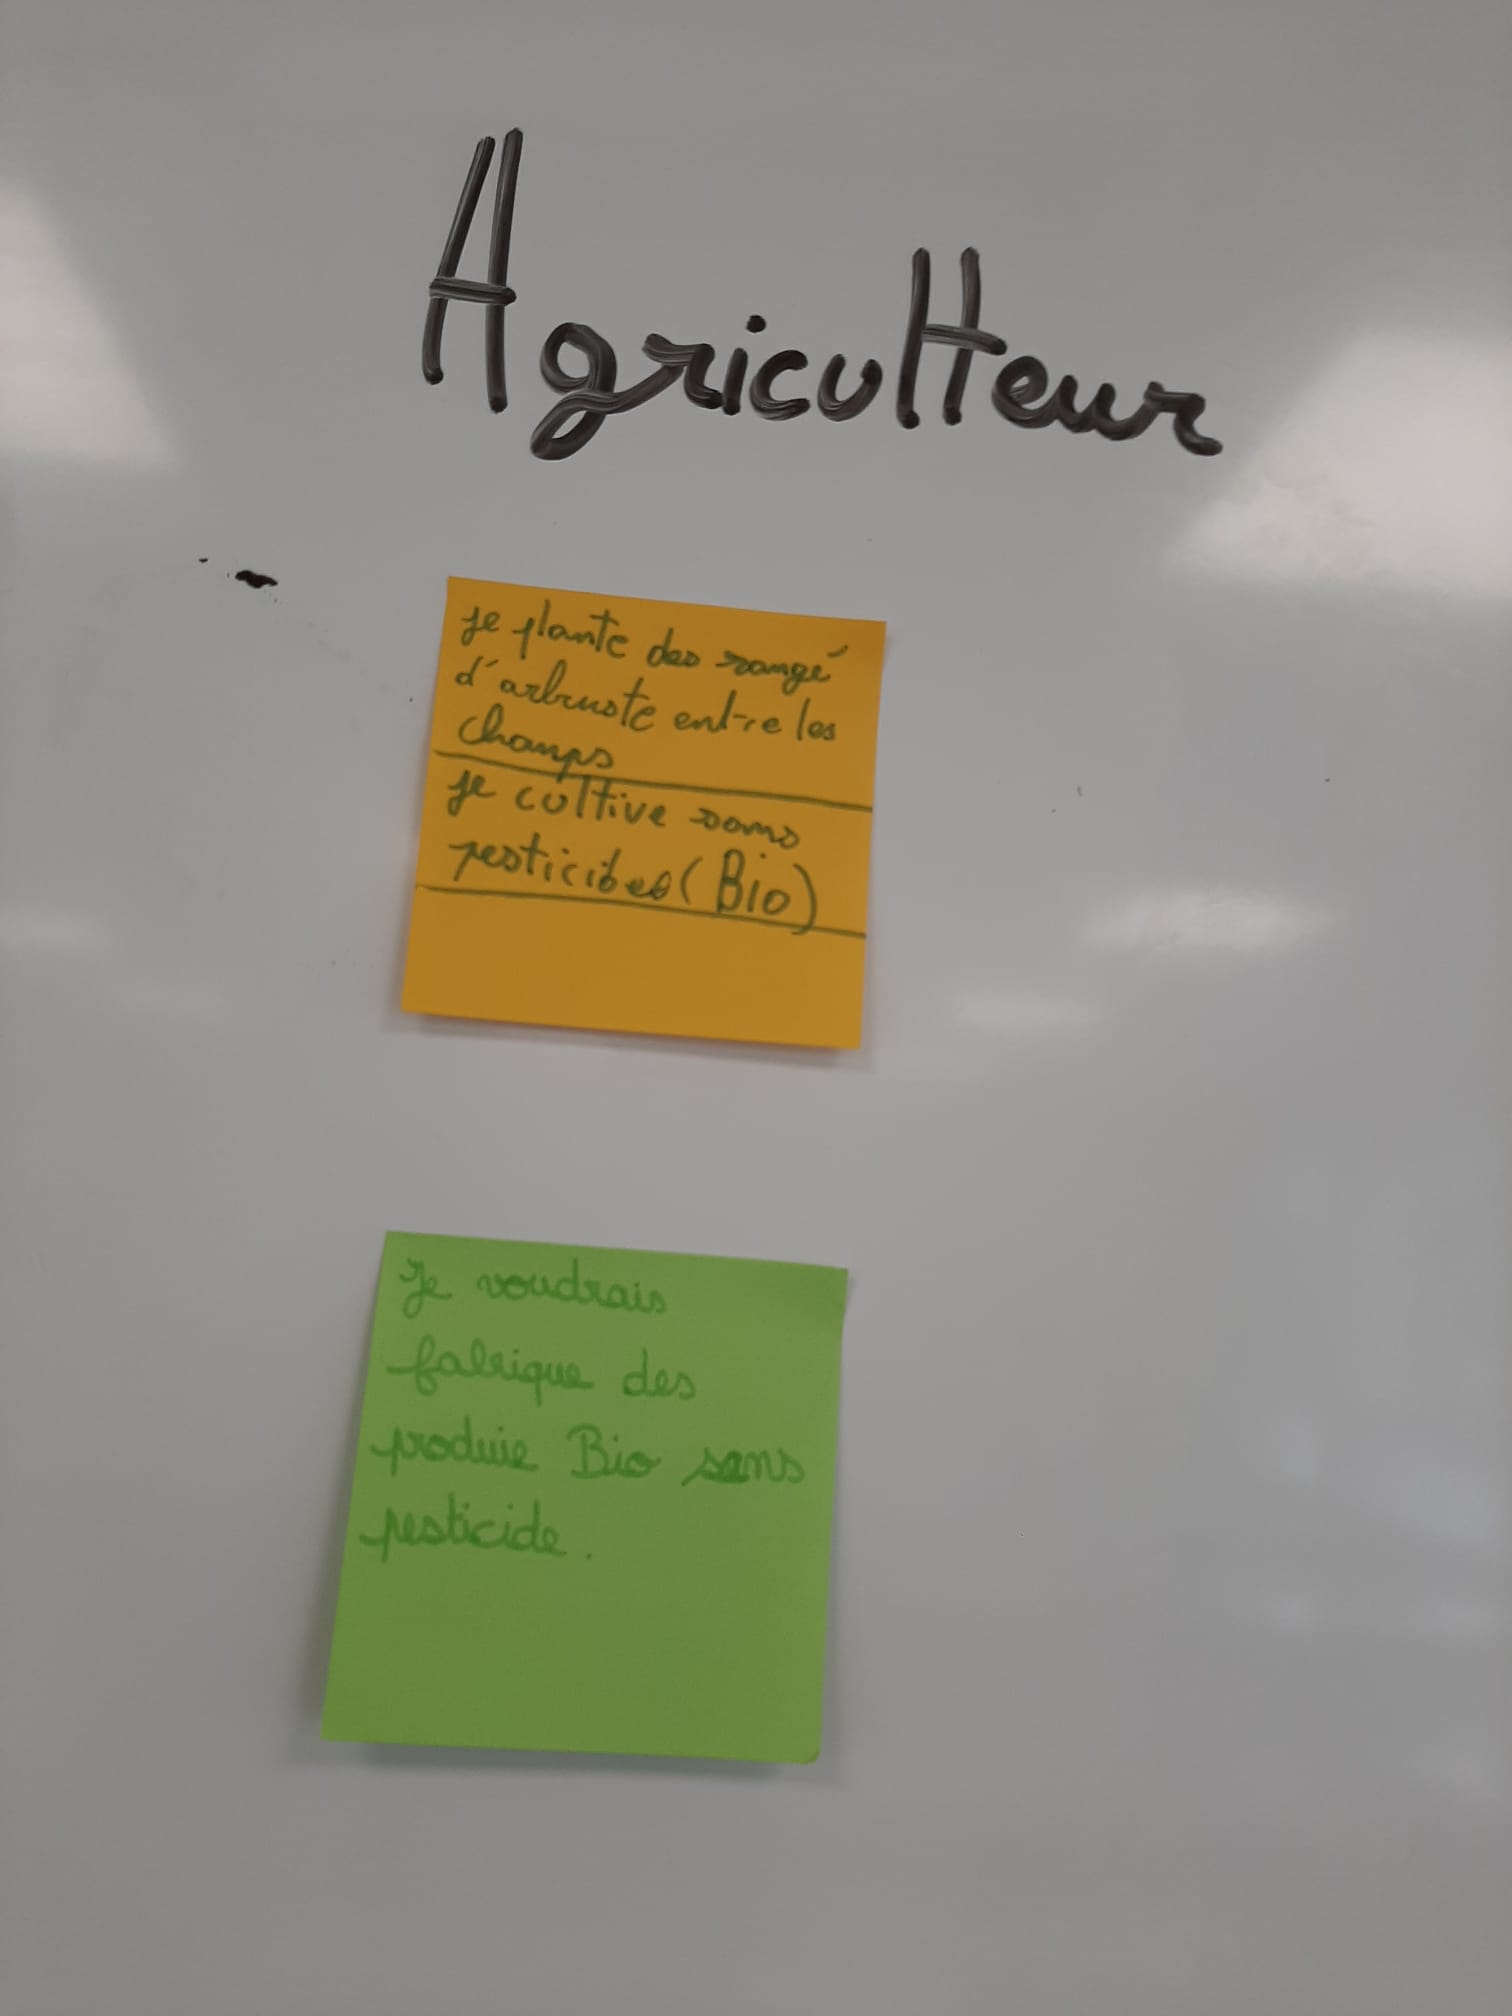 Agriculteur
je plante des rangé
d'arbuste entre les
champs
je cultive sans
pesticides (Bio)
Je voudrais
fabrique des
produie Bio sans
pesticide.